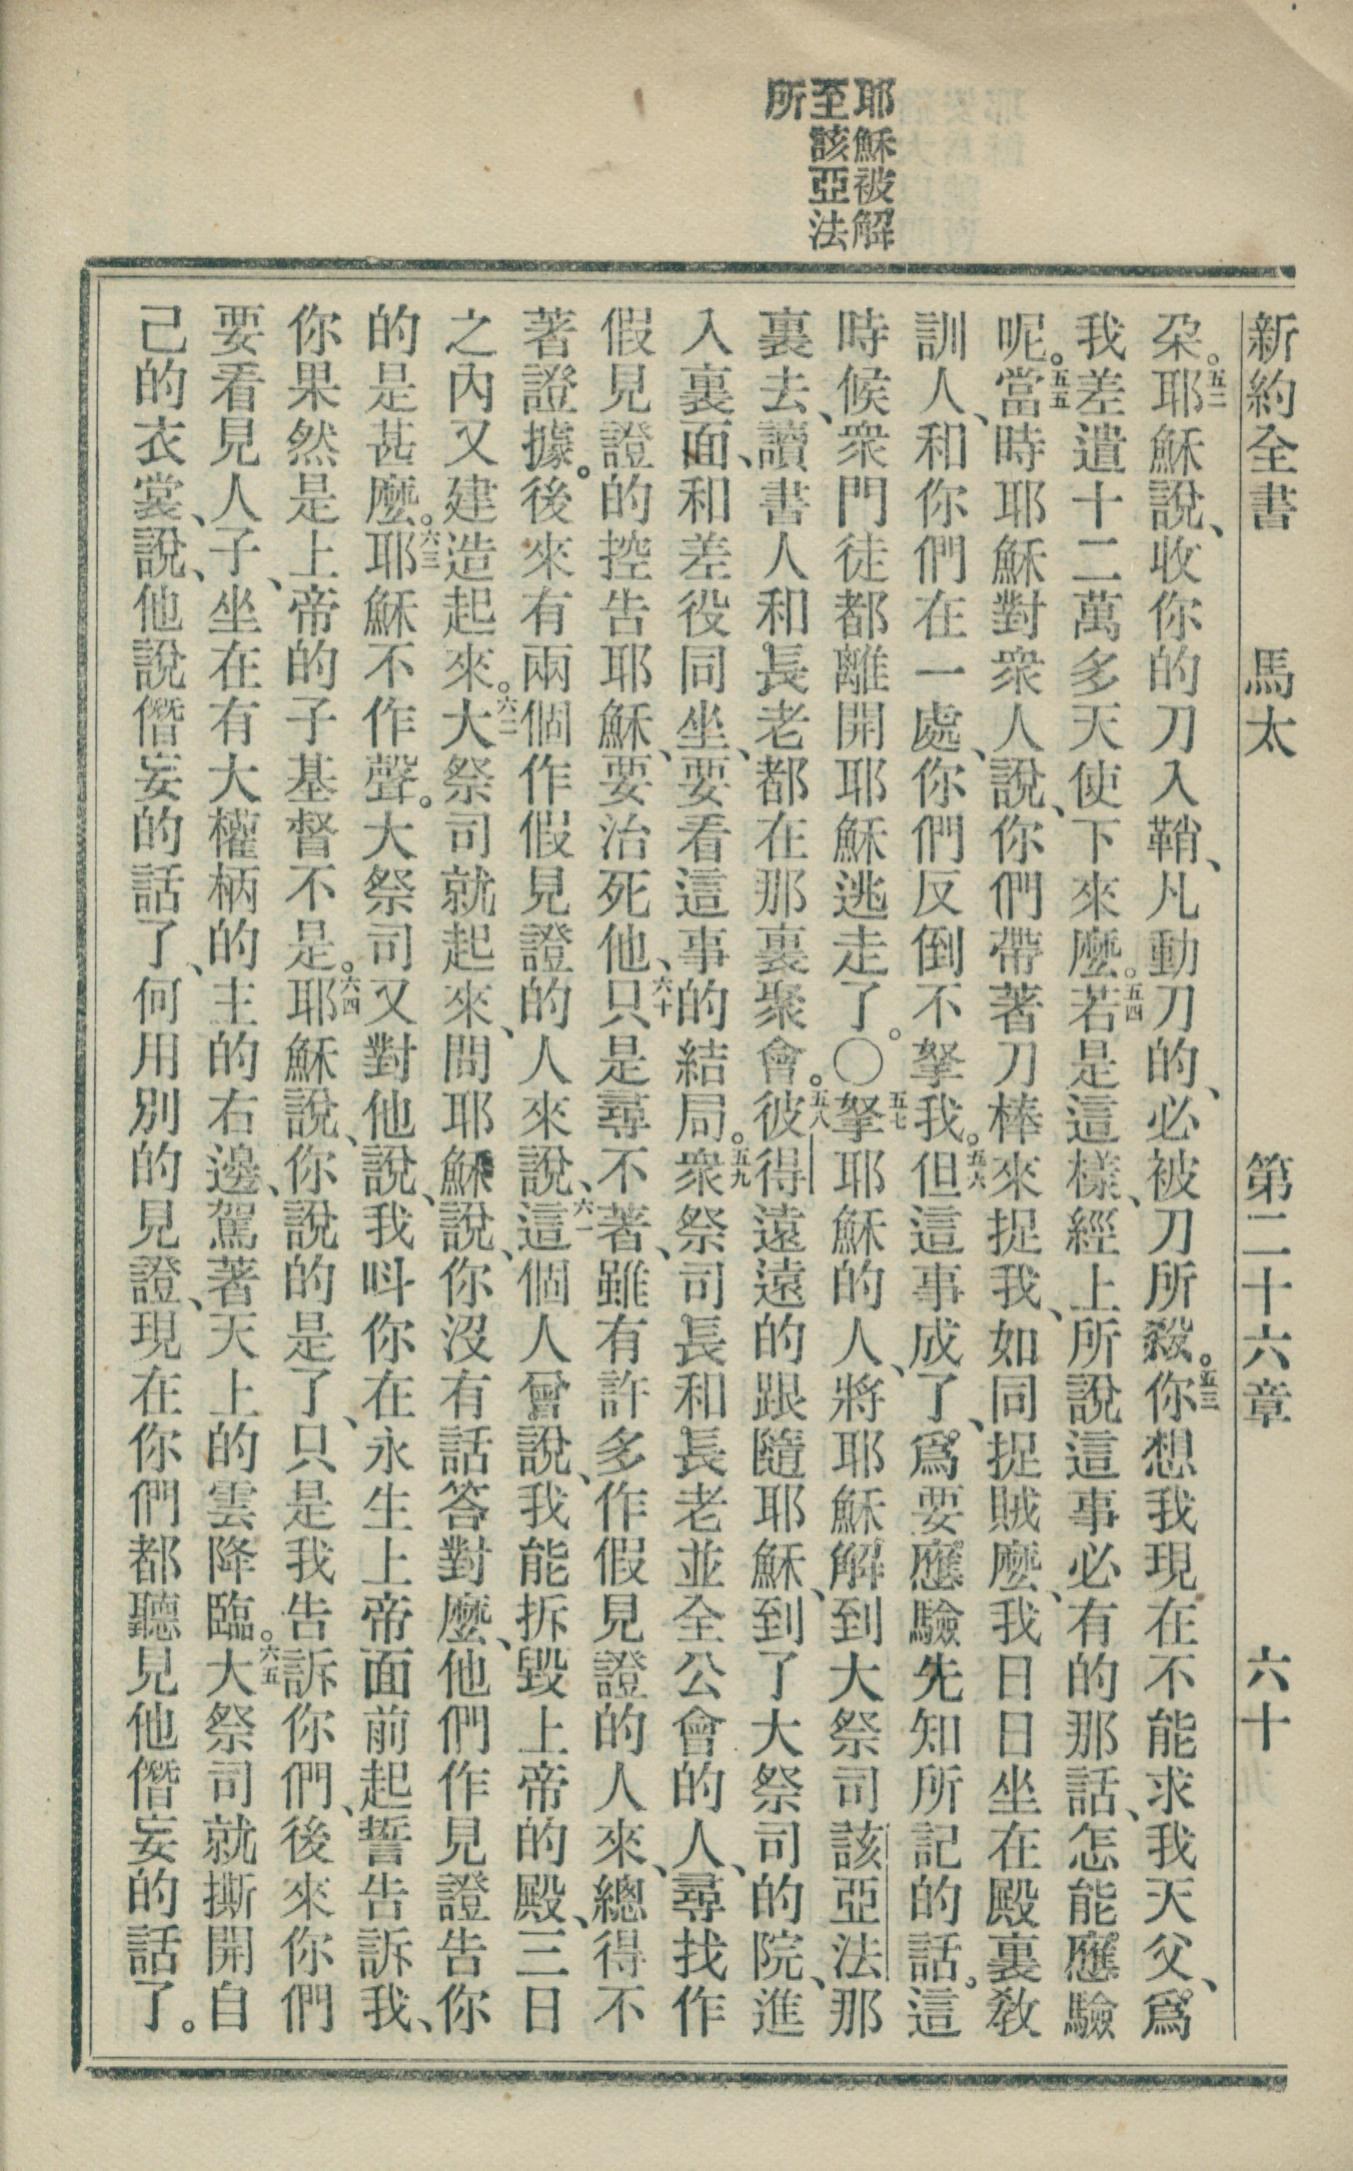 耶穌被解
至該亞法
所
新約全書 馬太 第二十六章 六十
朶。五二耶穌說、收你的刀入鞘、凡動刀的、必被刀所殺。五三你想我現在不能求我天父、爲
我差遣十二萬多天使下來麼。五四若是這樣、經上所說這事必有的那話、怎能應驗
呢。五五當時耶穌對衆人說、你們帶著刀棒來捉我、如同捉賊麼、我日日坐在殿裏教
訓人、和你們在一處、你們反倒不拏我。五六但這事成了、爲要應驗先知所記的話。這
時候衆門徒都離開耶穌逃走了。〇五七拏耶穌的人、將耶穌解到大祭司該亞法那
裏去、讀書人和長老都在那裏聚會。五八彼得遠遠的跟隨耶穌、到了大祭司的院、進
入裏面、和差役同坐、要看這事的結局。五九衆祭司長和長老並全公會的人、尋找作
假見證的控告耶穌、要治死他、六十只是尋不著、雖有許多作假見證的人來、總得不
著證據。後來有兩個作假見證的人來說、六一這個人曾說、我能拆毀上帝的殿、三日
之內又建造起來。六二大祭司就起來、問耶穌說、你沒有話答對麼、他們作見證告你
的是甚麼。六三耶穌不作聲。大祭司又對他說、我呌你在永生上帝面前起誓告訴我、
你果然是上帝的子基督不是。六四耶穌說、你說的是了、只是我告訴你們、後來你們
要看見人子、坐在有大權柄的主的右邊、駕著天上的雲降臨。六五大祭司就撕開自
己的衣裳、說、他說僭妄的話了、何用別的見證、現在你們都聽見他僭妄的話了。